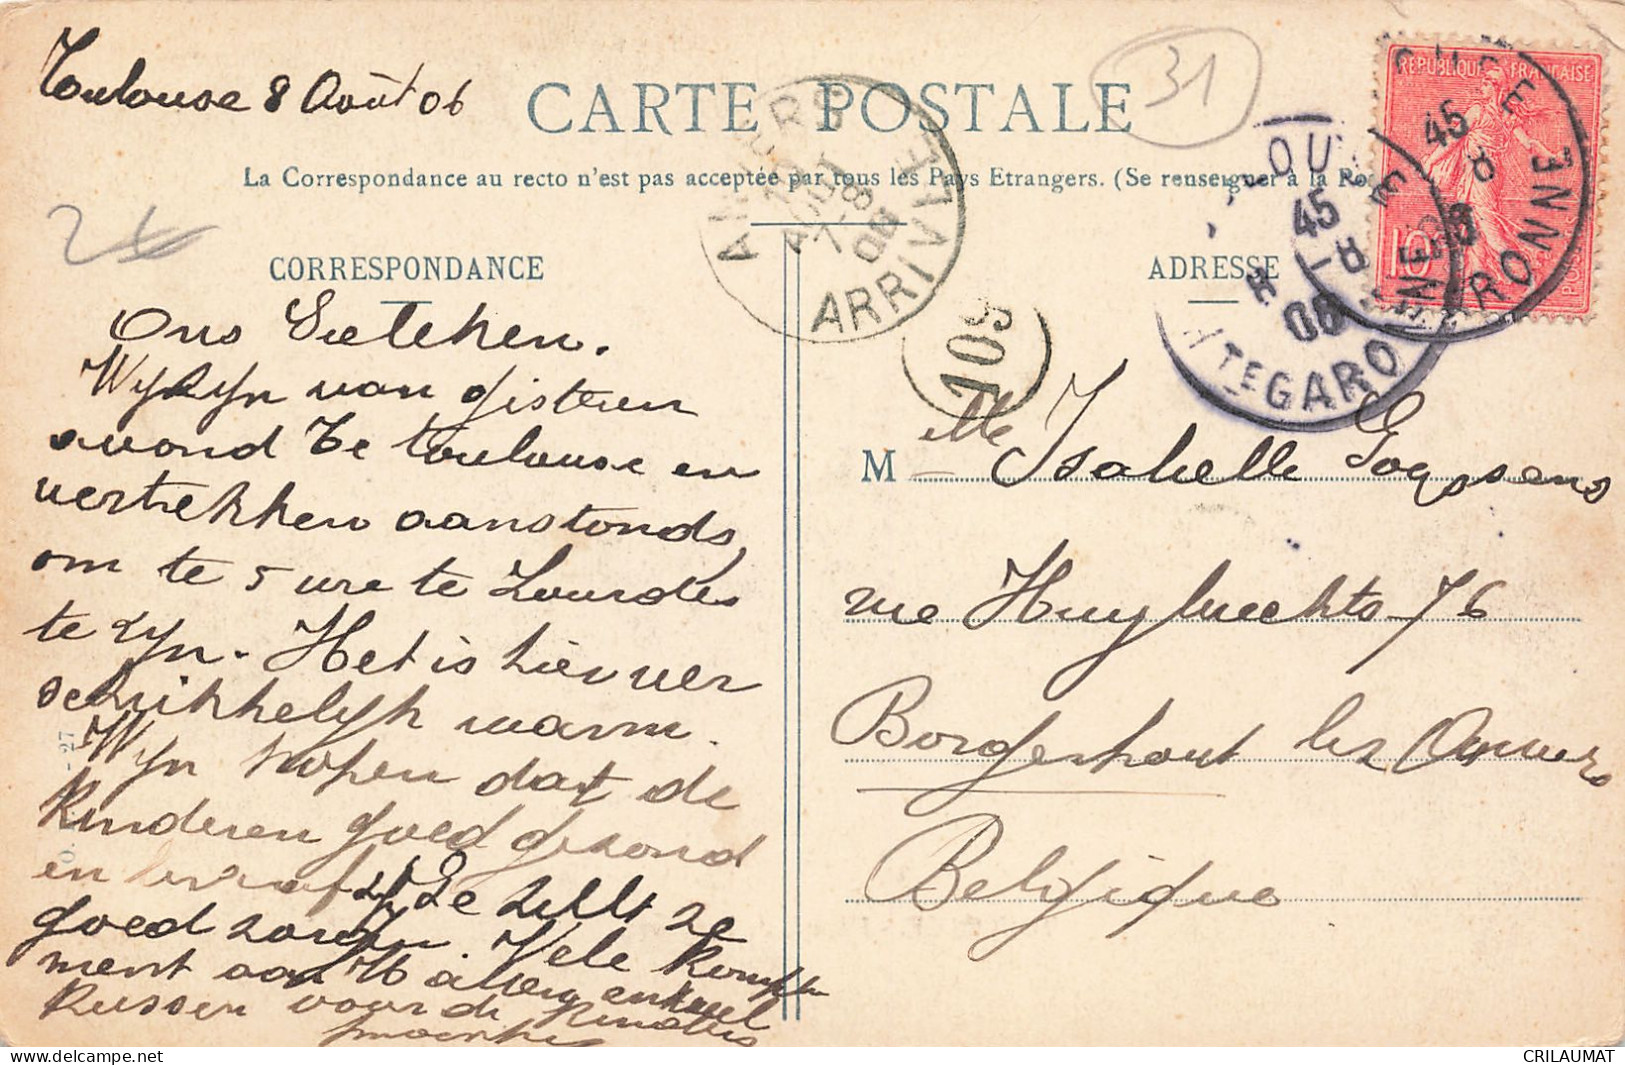 Toulouse 8 Août 06
31
CARTE POSTALE
La Correspondance au recto n'est pas acceptée par tous les Pays Etrangers. (Se renseigner à la
CORRESPONDANCE
ADRESSE
RÉPUBLIQUE FRANÇAISE
10
ANVERS
ARRIVÉE
TOULOUSE
HTE GARONNE
109
Ons
Wy zyn van gisteren
avond te Toulouse en
vertrekken aanstonds,
om te 5 ure te Lourdes
te zyn. Het is hier ver
schrikkelyk warm.
Wyn hopen dat de
Kinderen goed gezond
en braaf zyn
goed zorgen. Vele Kompli
ment aan
Kussen voor de
Mlle Isabelle Goyssens
rue Huybrechts 76
Borgerhout lez Anvers
Belgique
CRILAUMAT